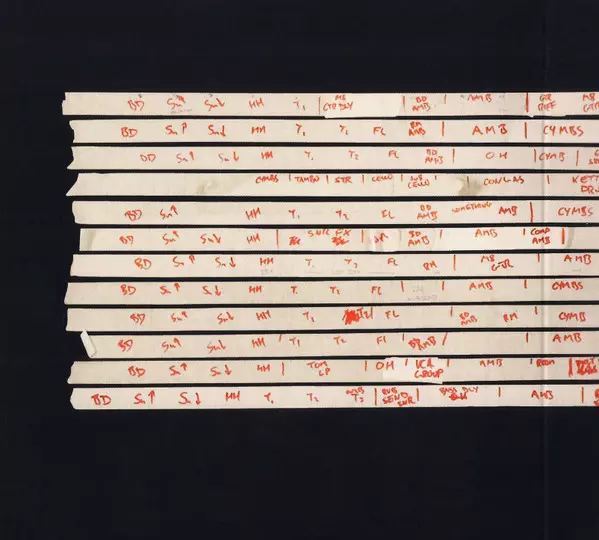 BD Sn↑ Sn↓ HH T1 | MB GTR DLY | BD AMB | AMB | GTR RIFF | MB GTR
BD Sn↑ Sn↓ HH T1 T2 FL RM AMB | AMB | CYMBS
BD Sn↑ Sn↓ HH T1 T2 FL BD AMB | OH | CYMB |
CYMBS | TAMBO | STR | CELLO | SUB CELLO | CONGAS | KETT DRU
BD Sn↑ HH T1 T2 FL BD AMB SOMETHING AMB | CYMBS
BD Sn↑ Sn↓ HH | SNR FX | BD AMB | AMB | COMP AMB |
BD Sn↑ Sn↓ HH T1 T2 FL RM | MB GTR | AMB
BD Sn↑ Sn↓ HH T1 T2 FL | | AMB | CYMBS
BD Sn↑ Sn↓ HH T1 T2 | FL | BD AMB RM | CYMBS
BD Sn↑ Sn↓ HH | T1 T2 FL | AMB | | AMB
BD Sn↑ Sn↓ HH | TOM LP | OH | GROUP AMB | ROOM |
BD Sn↑ Sn↓ HH T1 T2 T3 | SEND SNR | BASS DLY | AMB |